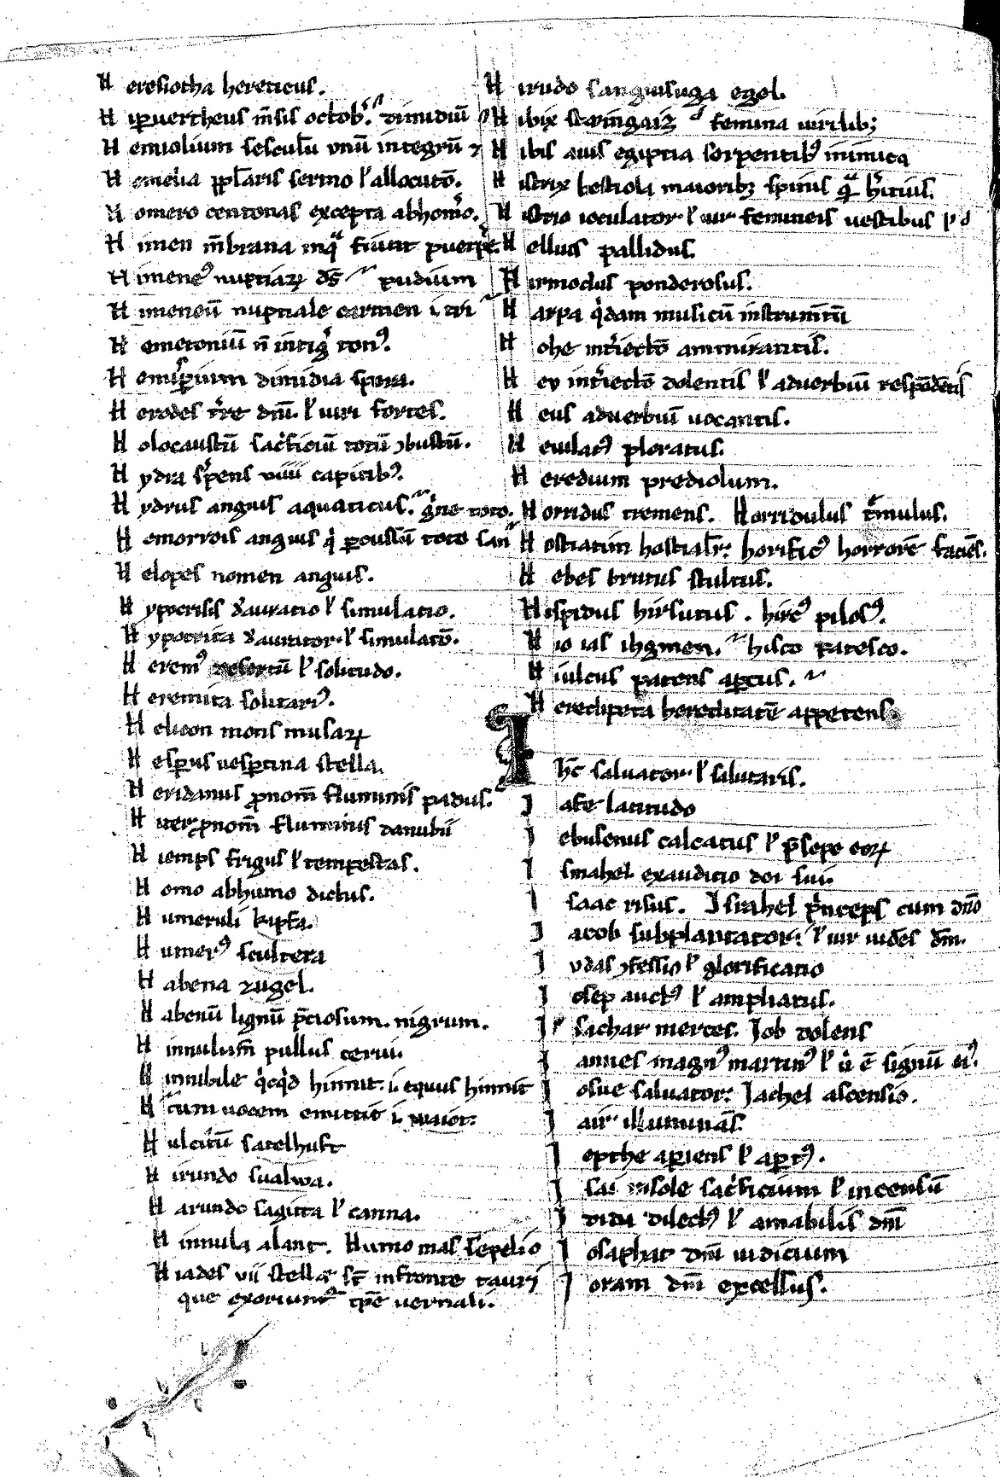 H eresiotha hereticus.
H ip̄uertheus m̄sis octob̄.
H emiolium sescul̄u vnū integrū ⁊ dimidiū
H emelia pp̄laris sermo ł allocutō.
H omero centonas excepta ab hom̄o.
H imen m̄brana inq̄ fiūt puerp̄e.
H imeneꝰ nuptiaꝝ ds̄
H imeneū nuptiale carmen i. tripudium
H emetoniū n̄ intiḡ tonꝰ.
H emisp̄ium dimidia spera.
H erodes t̄re dn̄i. ł uiri fortes.
H olocaustū sac̄ficiū totū ꝯbustū.
H ydra s̄pens viiii capitibꝰ.
H ydrus anguis aquaticus.
H emorrois anguis q̄ ꝑcussū toto sanḡne toto.
H elopes nomen anguis.
H ypocrisis d̄auratio ł simulatio.
H ypocrita d̄aurator ł simulatō.
H eremꝰ desertū ł solitudo.
H eremita solitariꝰ.
H elicon mons musaꝝ
H espꝑus vesꝑtina stella.
H eridanus ꝓnom̄ fluminis padus.
H ister ꝓnom̄ fluminis danubii
H iemps frigus ł tempestas.
H omo ab humo dictus.
H umeruli kipfa.
H umerꝰ scultera
H abena zugel.
H abenū lignū p̄ciosum. nigrum.
H innulum̄ pullus cerui.
H innibile q̄cq̄d hinnit. i. equus hinnit
H tum uocem emittit i. waiot.
H ulcitū satelhuft
H irundo sualwa.
H arundo sagitta ł canna.
H innula alant. Humo mas sepelio
H iades vii stelle s̄t in fronte tauri
que exoriunt̄ tp̄e uernali.
H irudo sanguisuga egol.
H ibix steingaiz
H ibis auis egiptia serpentibꝰ inimica
H istrix bestiola maioribꝫ spinis q̄ h̄icius.
H istrio ioculator ł uir femineis vestibus ł femina uirilibꝫ
H elluus pallidus.
H irmodus ponderosus.
H arpa q̄dam musicū instrum̄tū
H ohe int̄iectō ammirantis.
H ey int̄iectō dolentis ł aduerbiū respōdētis
H eus aduerbiū uocantis.
H eiulatꝰ ploratus.
H eredium prediolum.
H orridus tremens. Horridulus t̄mulus.
H ostiatim hostialr̄. horificꝰ horrorē faciēs.
H ebes brutus stultus.
H ispidus hirsutus. hircꝰ pilosꝰ.
H io ias ihgmen. hisco patesco.
H iulcus patens aꝑtus.
H eredipeta hereditatē appetens.
I hc̄ saluator ł salutaris.
I afe latitudo
I ebuseus calcatus ł p̄sepe eoꝝ
I smahel exauditio dei sui.
I saac risus. Israhel p̄nceps cum dn̄o
I acob subplantator. ł uir uidēs dm̄.
I udas ꝯfessio ł glorificatio
I osep auctꝰ ł ampliatus.
I sachar merces. Job dolens
I annes magnꝰ martirꝰ ł ū ē signū eiꝰ.
I osue saluator. Jachel ascensio.
I air illuminās.
I epthe aꝑiens ł aꝑtꝰ.
I sai insole sac̄ficium ł incensū
I didu dilectꝰ ł amabilis dn̄i
I osaphat dn̄i iudicium
I oram dn̄i excelsus.